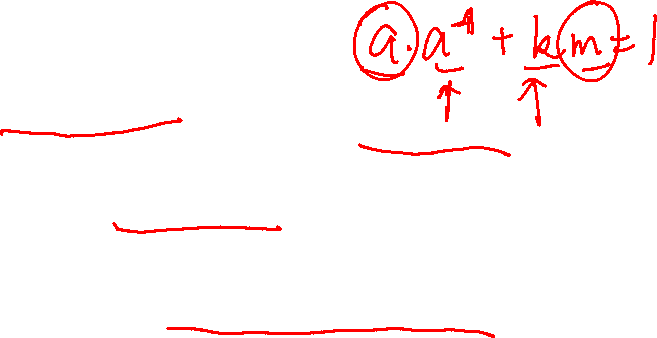 a · a⁻¹ + k m = 1